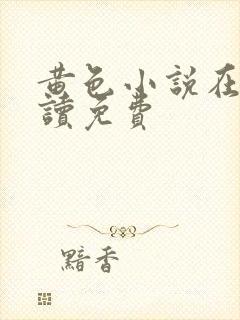 黃色小說在
讀免費
黯香